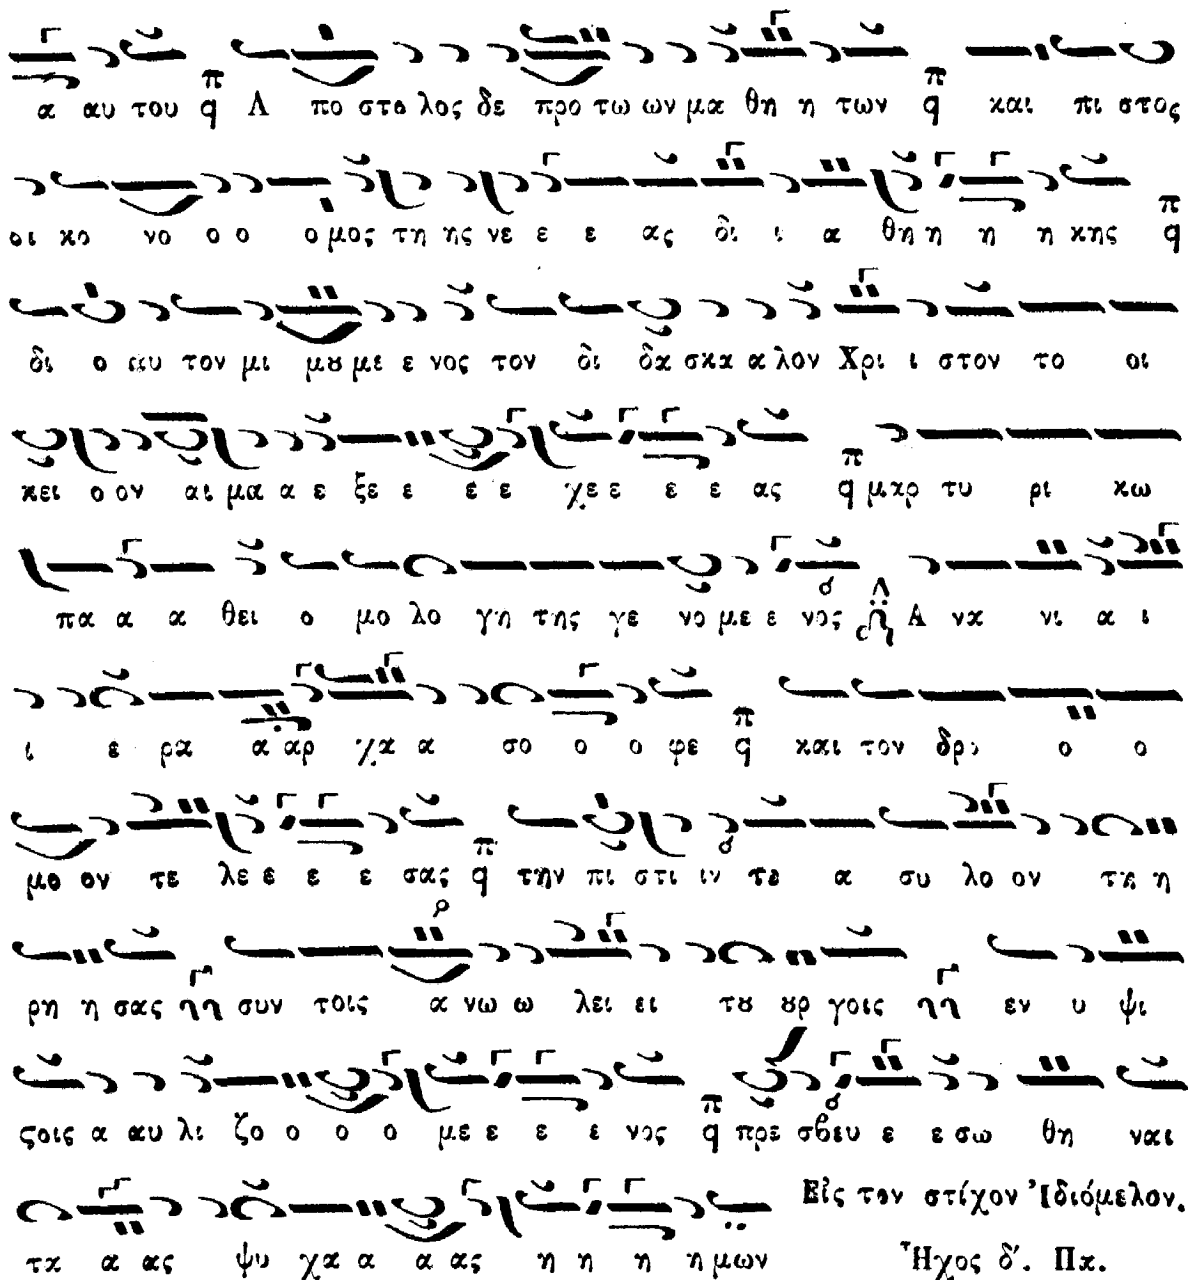 α αυ του π q Α πο στο λος δε προ τω ων μα θη η των π q και πι στος
οι κο νο ο ο ο μος τη ης νε ε ε ας δι ι α θη η η η κης π q
δι ο αυ τον μι μȣ με ε νος τον δι δα σκα α λον Χρι ι στον το οι
κει ο ον αι μα α ε ξε ε ε ε χε ε ε ε ας π q μαρ τυ ρι κω
πα α α θει ο μο λο γη της γε νο με ε νος Α να νι α ι
ι ε ρα α αρ χα α σο ο ο φε π q και τον δρο ο ο
μο ον τε λε ε ε ε σας π q την πι στι ιν τε α συ λο ον τη η
ρη η σας ηη συν τοις α νω ω λει ει τȣ ȣρ γοις ηη εν υ ψι
ςοις α αυ λι ζο ο ο ο με ε ε ε νος π q πρε σβευ ε ε σω θη ναι
τα α ας ψυ χα α α ας η η η η μων Εἰς τον στίχον Ἰδιόμελον.
Ἦχος δ΄. Πα.